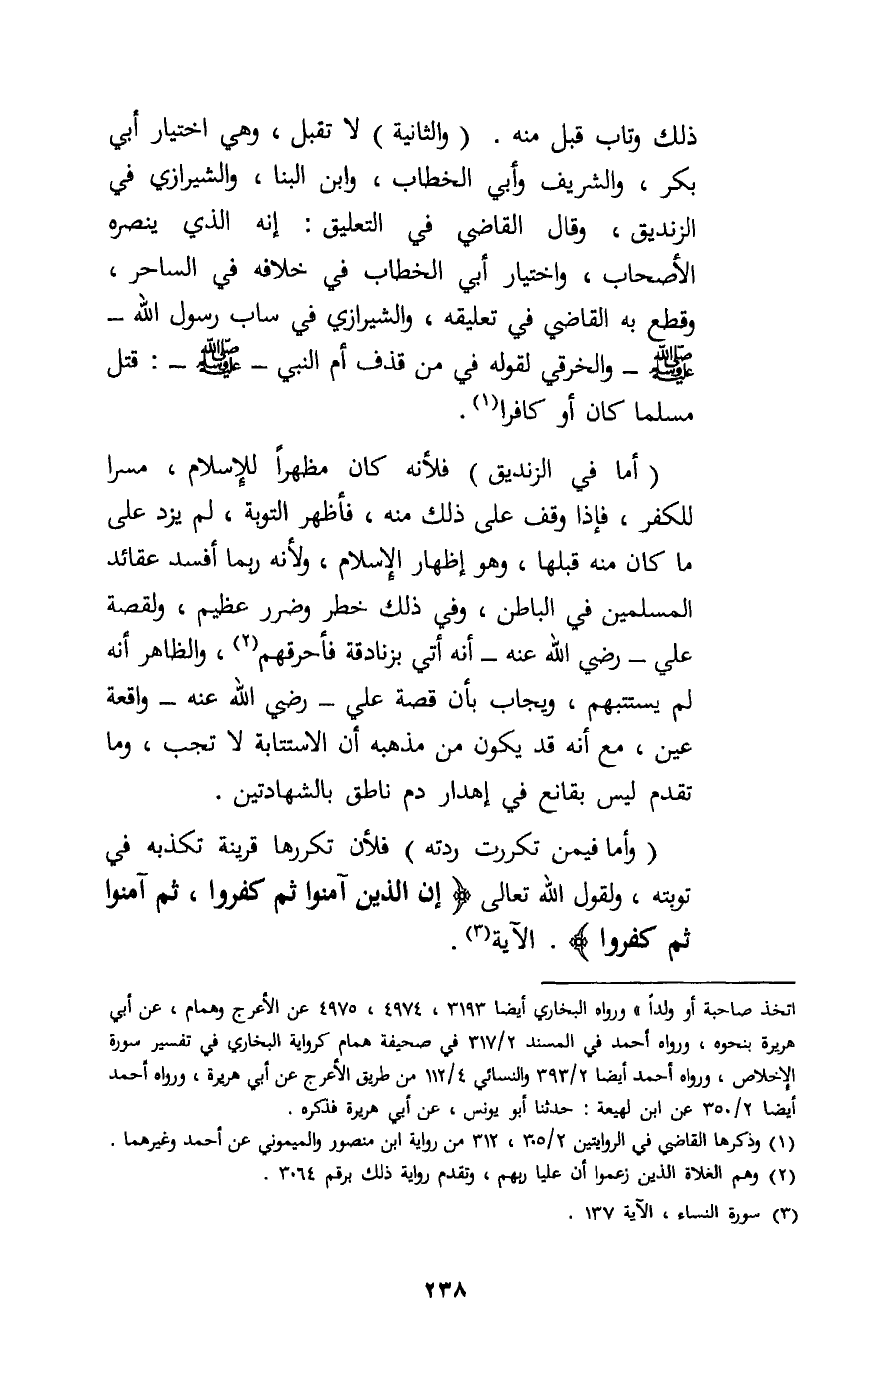 ذلك وتاب قبل منه . ( والثانية ) لا تقبل ، وهي اختيار أبي
بكر ، والشريف وأبي الخطاب ، وابن البنا ، والشيرازي في
الزنديق ، وقال القاضي في التعليق : إنه الذي ينصره
الأصحاب ، واختيار أبي الخطاب في خلافه في الساحر ،
وقطع به القاضي في تعليقه ، والشيرازي في ساب رسول الله –
ﷺ – والخرقي لقوله في من قذف أم النبي – ﷺ – : قتل
مسلما كان أو كافرا(١) .
( أما في الزنديق ) فلأنه كان مظهراً للإسلام ، مسرا
للكفر ، فإذا وقف على ذلك منه ، فأظهر التوبة ، لم يزد على
ما كان منه قبلها ، وهو إظهار الإسلام ، ولأنه ربما أفسد عقائد
المسلمين في الباطن ، وفي ذلك خطر وضرر عظيم ، ولقصة
علي – رضي الله عنه – أنه أتي بزنادقة فأحرقهم(٢) ، والظاهر أنه
لم يستتبهم ، ويجاب بأن قصة علي – رضي الله عنه – واقعة
عين ، مع أنه قد يكون من مذهبه أن الاستتابة لا تجب ، وما
تقدم ليس بقانع في إهدار دم ناطق بالشهادتين .
( وأما فيمن تكررت ردته ) فلأن تكررها قرينة تكذبه في
توبته ، ولقول الله تعالى ﴿ إن الذين آمنوا ثم كفروا ، ثم آمنوا
ثم كفروا ﴾ . الآية(٣) .
اتخذ صاحبة أو ولداً » ورواه البخاري أيضا ٣١٩٣ ، ٤٩٧٤ ، ٤٩٧٥ عن الأعرج وهمام ، عن أبي
هريرة بنحوه ، ورواه أحمد في المسند ٣١٧/٢ في صحيفة همام كرواية البخاري في تفسير سورة
الإخلاص ، ورواه أحمد أيضا ٣٩٣/٢ والنسائي ١١٢/٤ من طريق الأعرج عن أبي هريرة ، ورواه أحمد
أيضا ٣٥٠/٢ عن ابن لهيعة : حدثنا أبو يونس ، عن أبي هريرة فذكره .
(١) وذكرها القاضي في الروايتين ٣٠٥/٢ ، ٣١٢ من رواية ابن منصور والميموني عن أحمد وغيرهما .
(٢) وهم الغلاة الذين زعموا أن عليا ربهم ، وتقدم رواية ذلك برقم ٣٠٦٤ .
(٣) سورة النساء ، الآية ١٣٧ .
٢٣٨